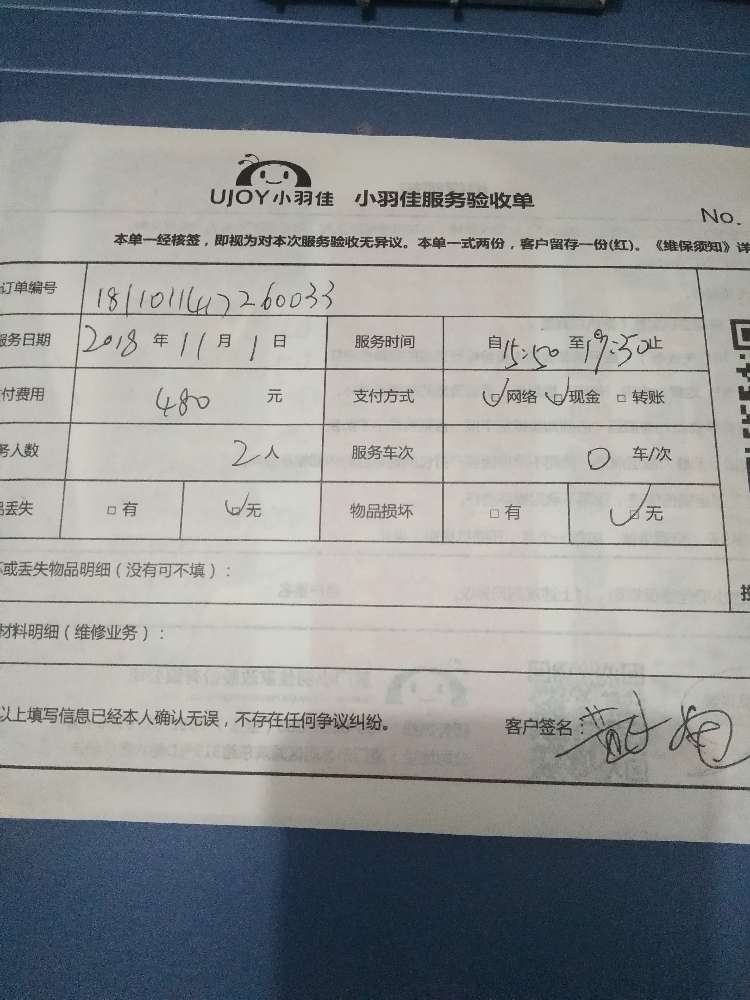 UJOY小羽佳 小羽佳服务验收单
No.
本单一经核签，即视为对本次服务验收无异议。本单一式两份，客户留存一份(红)。《维保须知》详
订单编号 181101147260033
服务日期 2018 年 11 月 1 日 服务时间 自15:50至19:30止
付费用 480 元 支付方式 ☑网络 ☑现金 □转账
务人数 2人 服务车次 0 车/次
丢失 □有 ☑无 物品损坏 □有 ☑无
坏或丢失物品明细（没有可不填）：
材料明细（维修业务）：
以上填写信息已经本人确认无误，不存在任何争议纠纷。 客户签名：